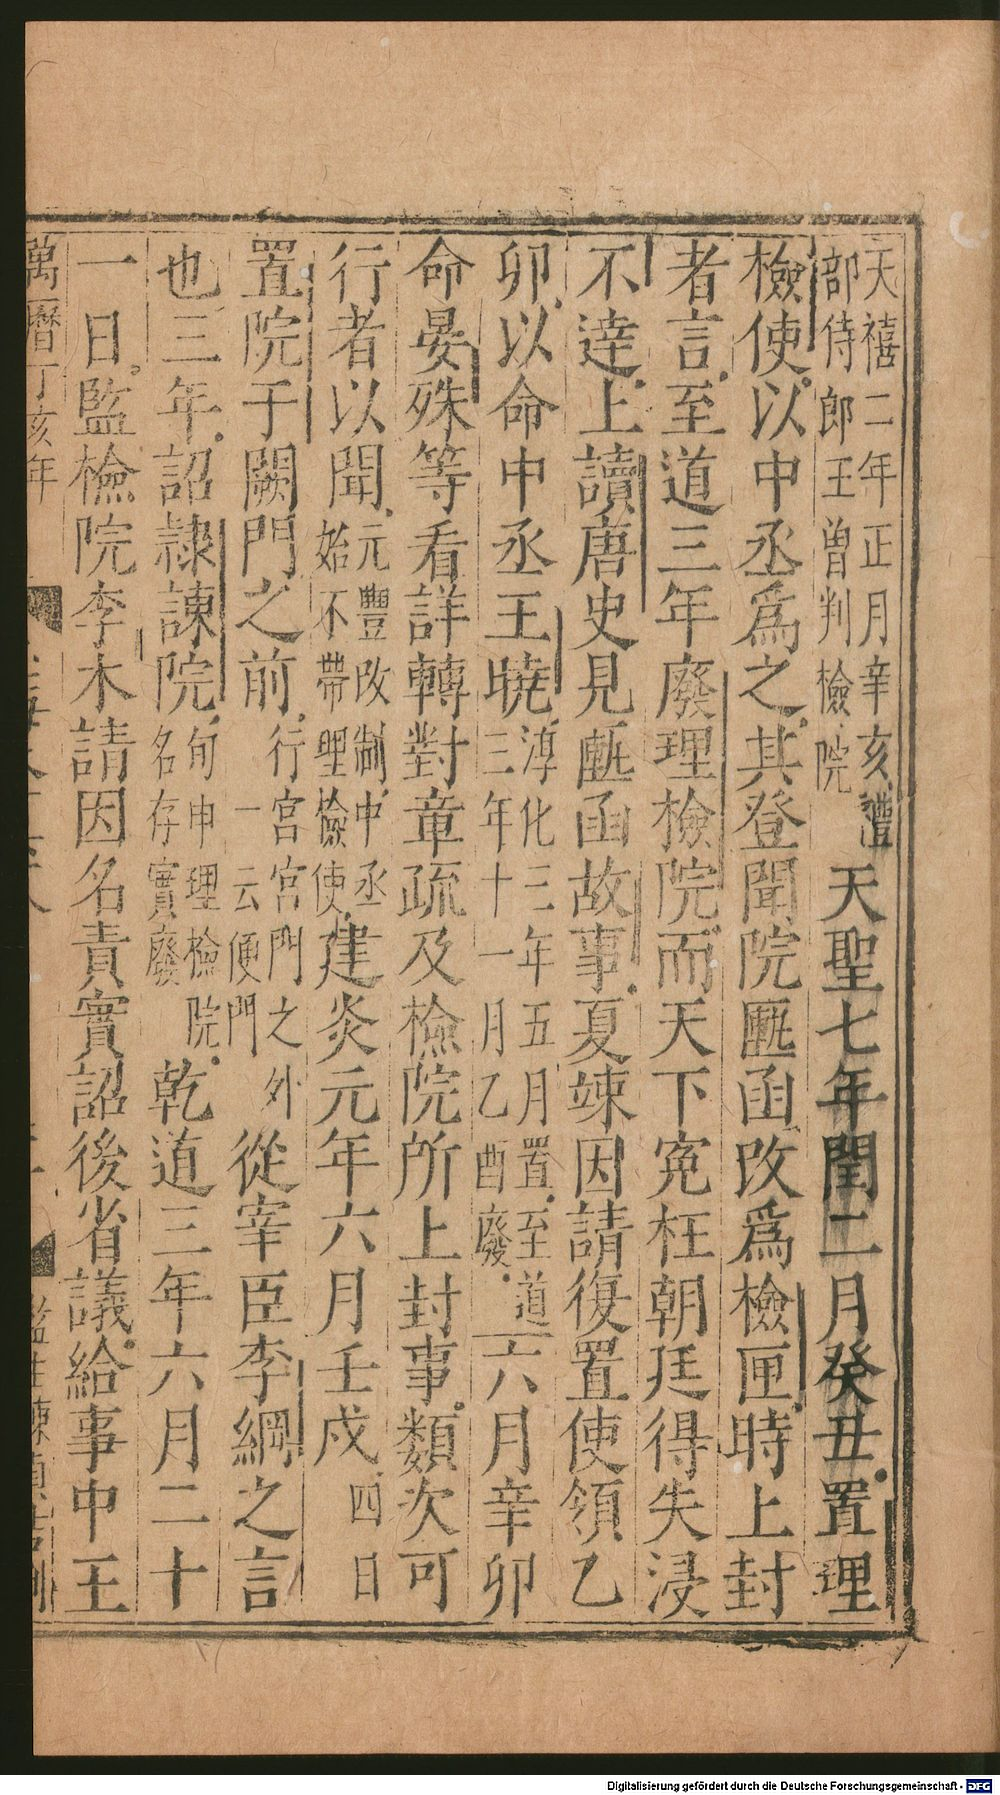 天禧二年正月辛亥禮部侍郎王曾判檢院天聖七年閏二月癸丑置理
檢使以中丞爲之其登聞院匭函改爲檢匣時上封
者言至道三年廢理檢院而天下冤枉朝廷得失浸
不達上讀唐史見匭函故事夏竦因請復置使領乙
卯以命中丞王曉淳化三年五月置至道三年十一月乙酉廢六月辛卯
命晏殊等看詳轉對章疏及檢院所上封事類次可
行者以聞元豐改制中丞始不帶理檢使建炎元年六月壬戌四日
置院于闕門之前行宮宮門之外一云便門從宰臣李綱之言
也三年詔隷諫院旬申理檢院名存實廢乾道三年六月二十
一日監檢院李木請因名責實詔後省議給事中王
萬曆丁亥年
Digitalisierung gefördert durch die Deutsche Forschungsgemeinschaft - DFG